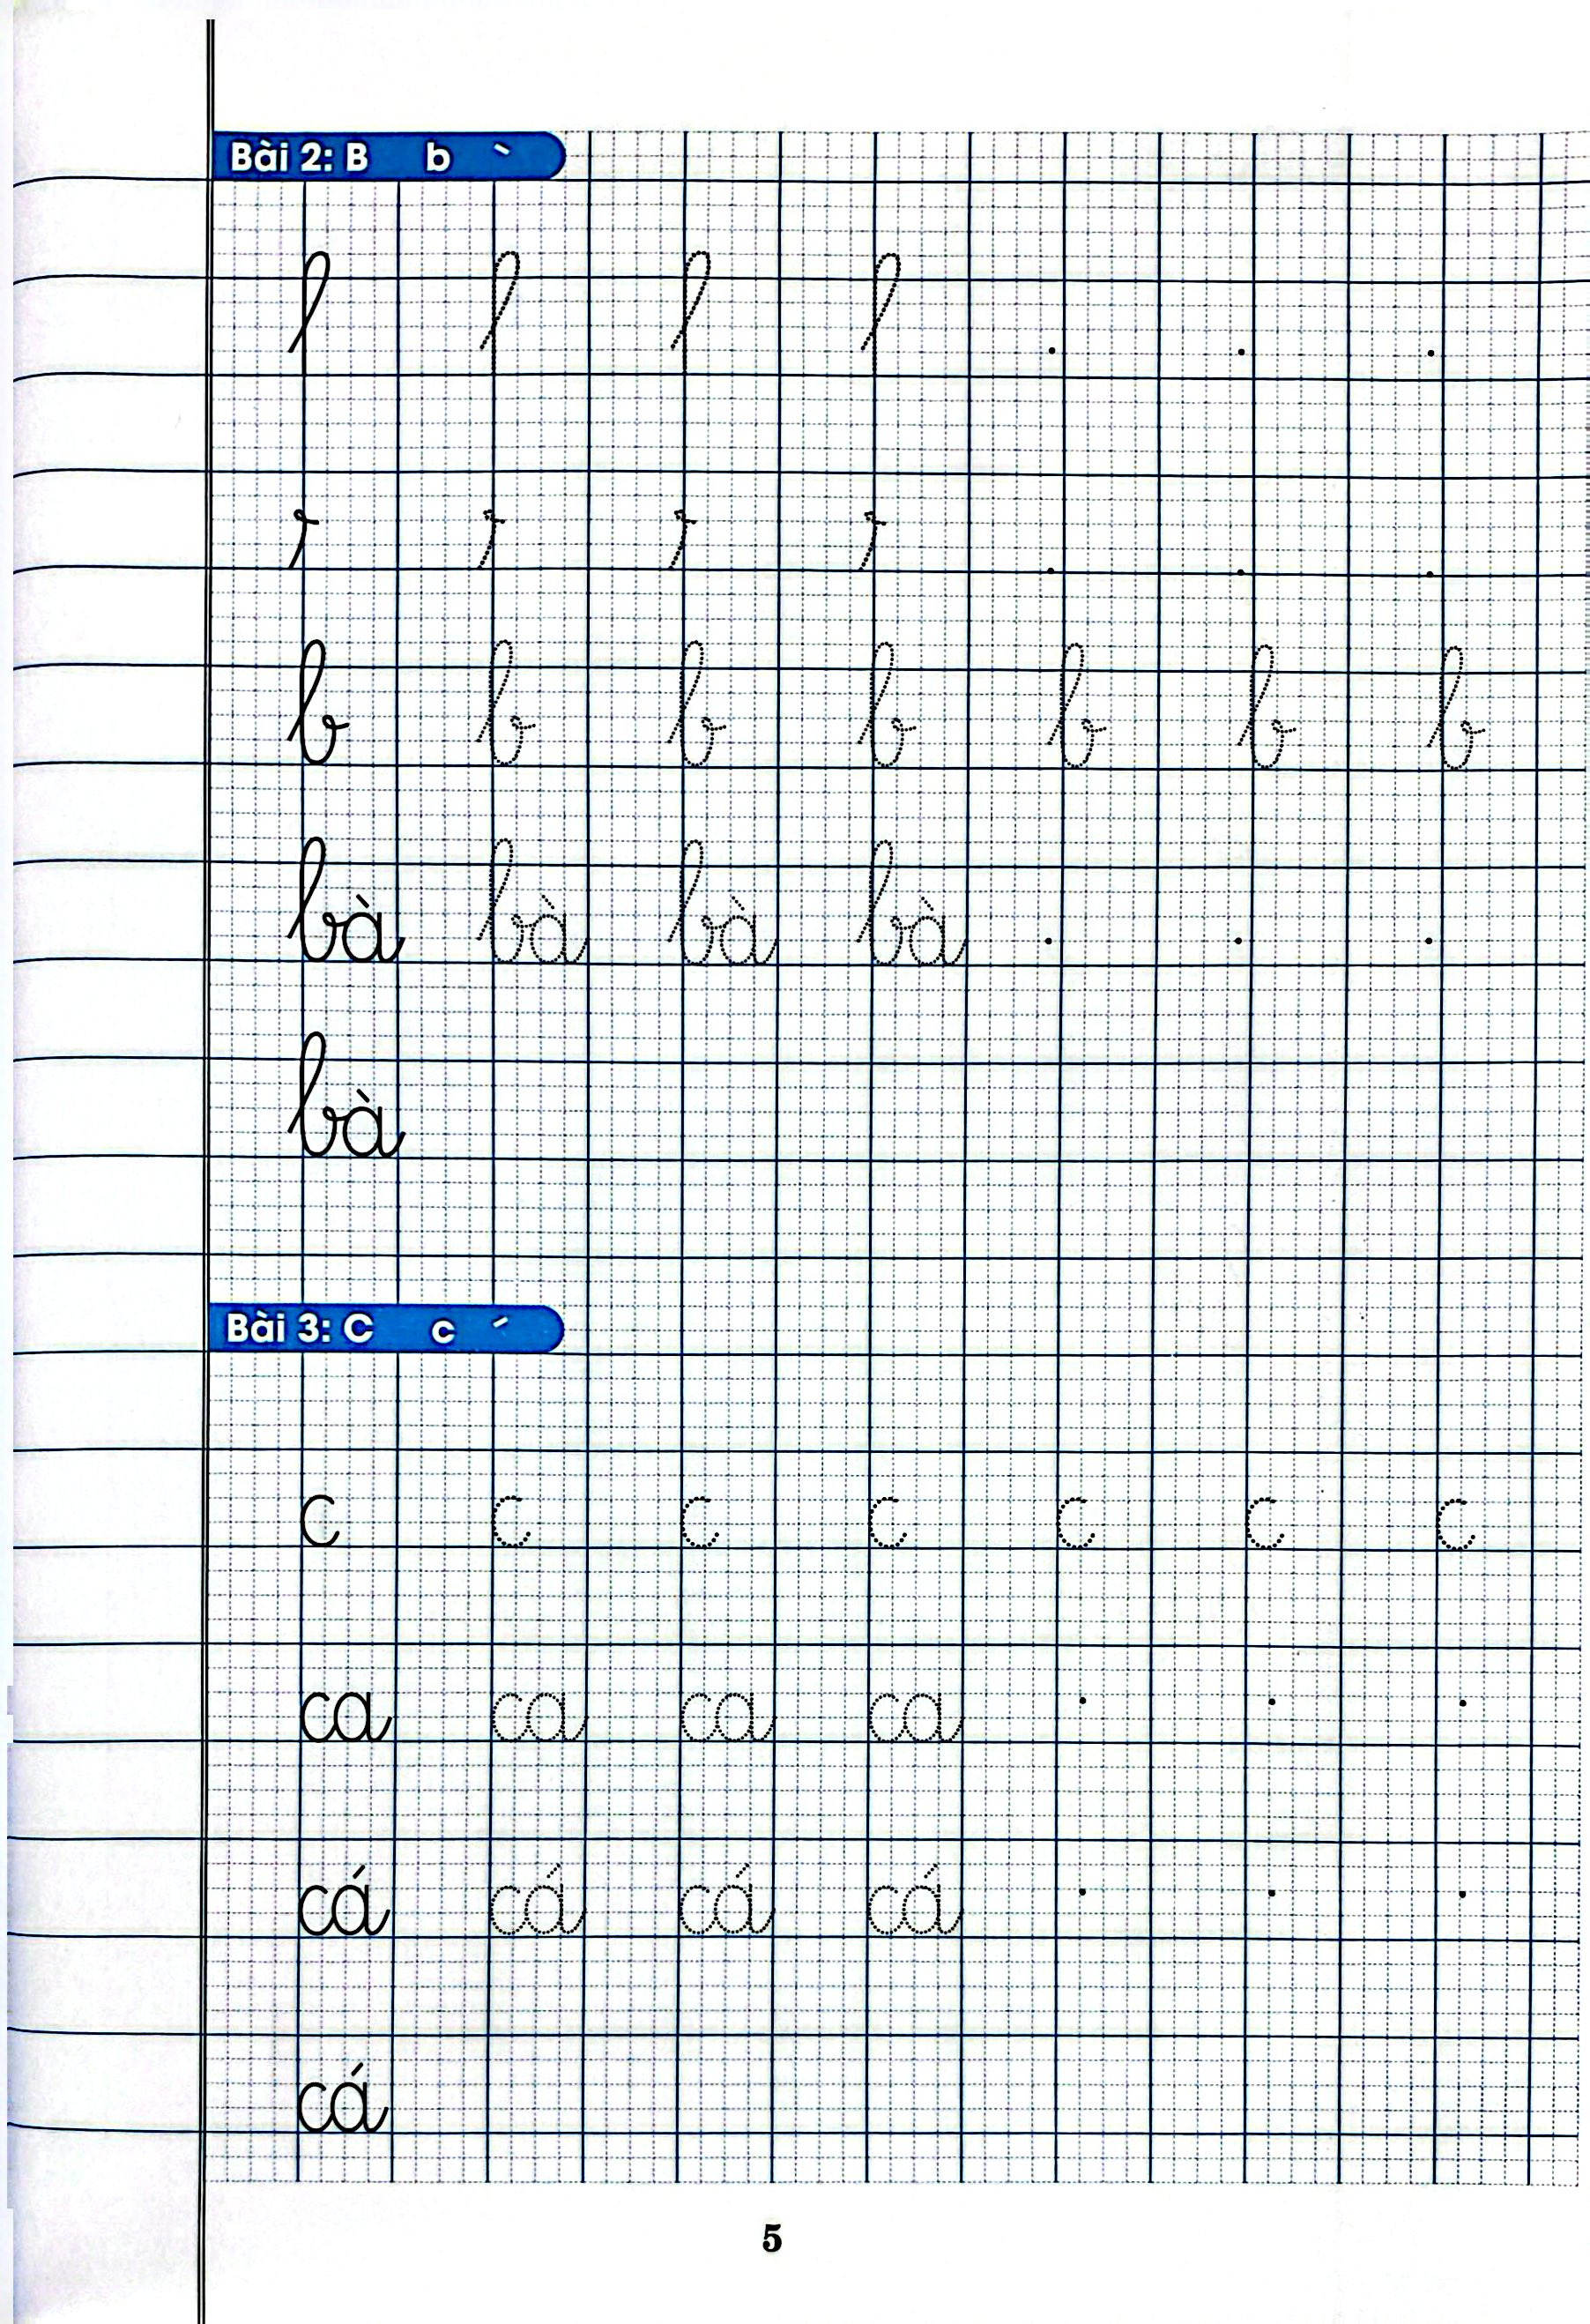 Bài 2: B b `
b b b b b b b
bà bà bà bà
bà
Bài 3: C c ´
c c c c c c c
ca ca ca ca
cá cá cá cá
cá
5